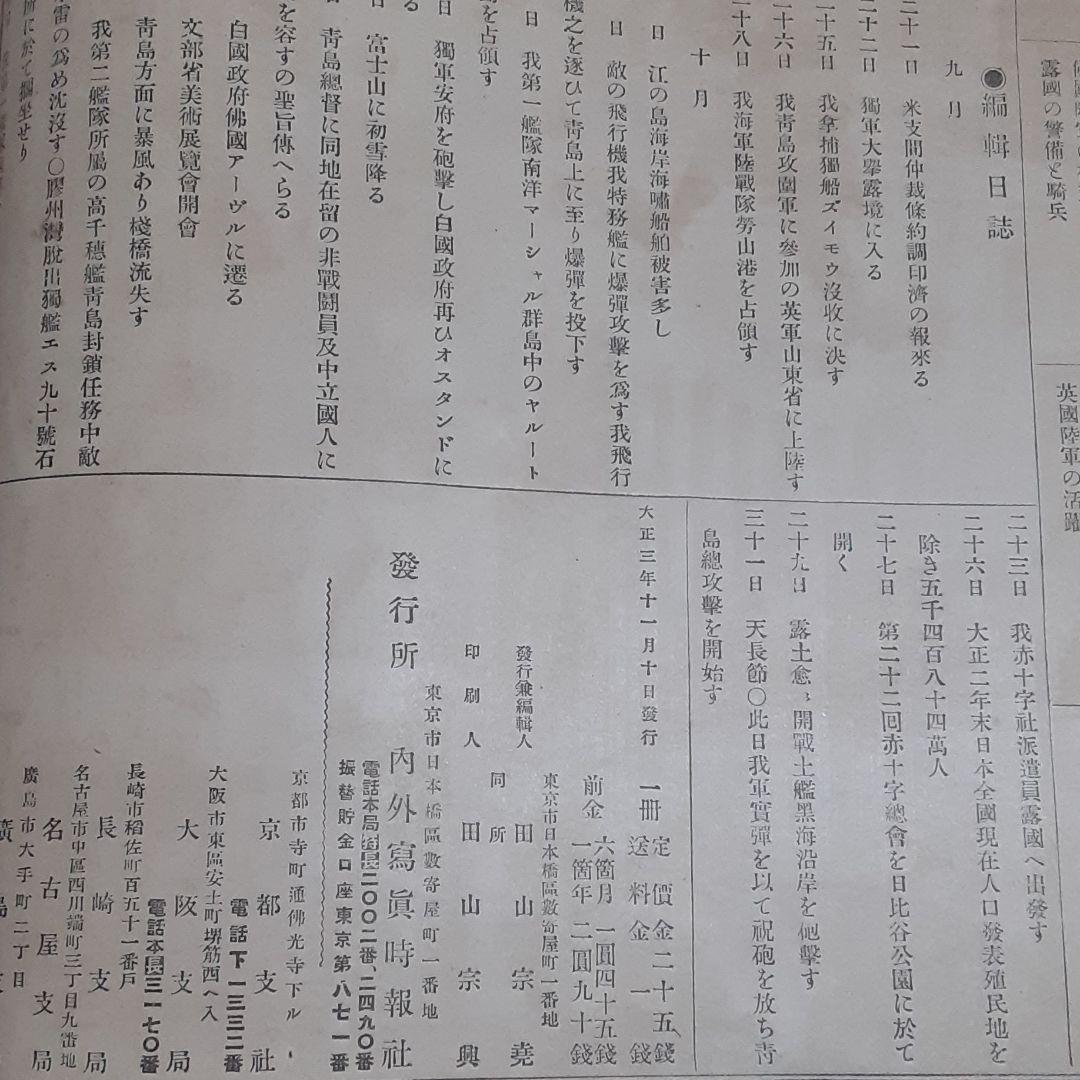 露國の警備と騎兵
英國陸軍の活躍
●編輯日誌
九月
二十一日 米支間仲裁條約調印濟の報來る
二十二日 獨軍大擧露境に入る
二十五日 我拿捕獨船ズイモウ沒收に決す
二十六日 我靑島攻圍軍に參加の英軍山東省に上陸す
二十八日 我海軍陸戰隊勞山港を占領す
十月
日 江の島海岸海嘯船舶被害多し
日 敵の飛行機我特務艦に爆彈攻擊を爲す我飛行
機之を逐ひて靑島上に至り爆彈を投下す
日 我第一艦隊南洋マーシャル群島中のヤルート
を占領す
日 獨軍安府を砲擊し白國政府再ひオスタンドに
る
日 富士山に初雪降る
日 靑島總督に同地在留の非戰鬪員及中立國人に
を容すの聖旨傳へらる
白國政府佛國アーヴルに遷る
文部省美術展覽會開會
靑島方面に暴風あり棧橋流失す
我第二艦隊所屬の高千穗艦靑島封鎖任務中敵
雷の爲め沈沒す〇膠州灣脫出獨艦エス九十號石
所に於て擱坐せり
二十三日 我赤十字社派遣員露國へ出發す
二十六日 大正二年末日本全國現在人口發表殖民地を
除き五千四百八十四萬人
二十七日 第二十二回赤十字總會を日比谷公園に於て
開く
二十九日 露土愈〻開戰土艦黑海沿岸を砲擊す
三十一日 天長節〇此日我軍實彈を以て祝砲を放ち靑
島總攻擊を開始す
大正三年十一月十日發行
一冊 定價金二十五錢
送料金一錢
前金 六箇月 一圓四十五錢
一箇年 二圓九十錢
東京市日本橋區數寄屋町一番地
發行兼編輯人 田山宗堯
同所
印刷人 田山宗興
東京市日本橋區數寄屋町一番地
發行所 內外寫眞時報社
電話本局長二〇〇二番、二四九〇番
振替貯金口座東京第八七一番
京都市寺町通佛光寺下ル
京都支社
電話下一三三二番
大阪市東區安土町堺筋西へ入
大阪支局
電話本長三一七〇番
長崎市稻佐町百五十一番戶
長崎支局
名古屋市中區西川端町三丁目九番地
名古屋支局
廣島市大手町二丁目